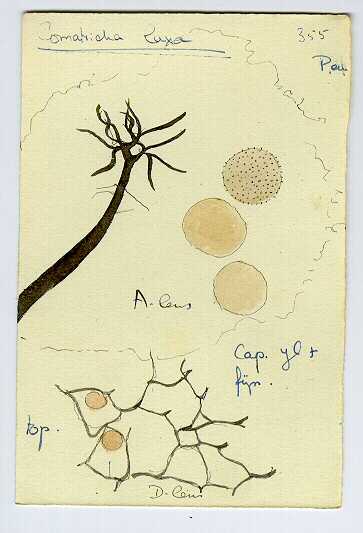 Comatricha Laxa
355
A-lens
Cap. yl +
fijn.
top.
D-lens